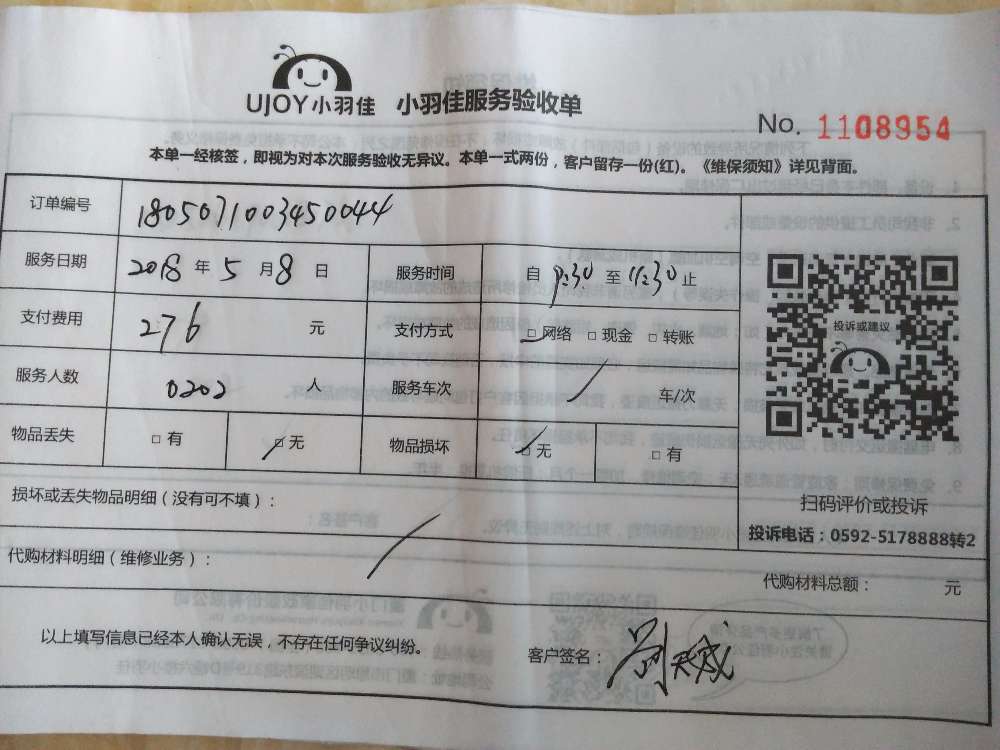 UJOY小羽佳 小羽佳服务验收单
No. 1108954
本单一经核签，即视为对本次服务验收无异议。本单一式两份，客户留存一份(红)。《维保须知》详见背面。
订单编号 1805071003450044
服务日期 2018 年 5 月 8 日 服务时间 自 9:30 至 11:30 止
支付费用 276 元 支付方式 □网络 □现金 □转账
服务人数 0202 人 服务车次 / 车/次
物品丢失 □有 □无 物品损坏 □无 □有
投诉或建议
扫码评价或投诉
投诉电话：0592-5178888转2
损坏或丢失物品明细（没有可不填）：
代购材料明细（维修业务）：
代购材料总额： 元
以上填写信息已经本人确认无误，不存在任何争议纠纷。
客户签名：